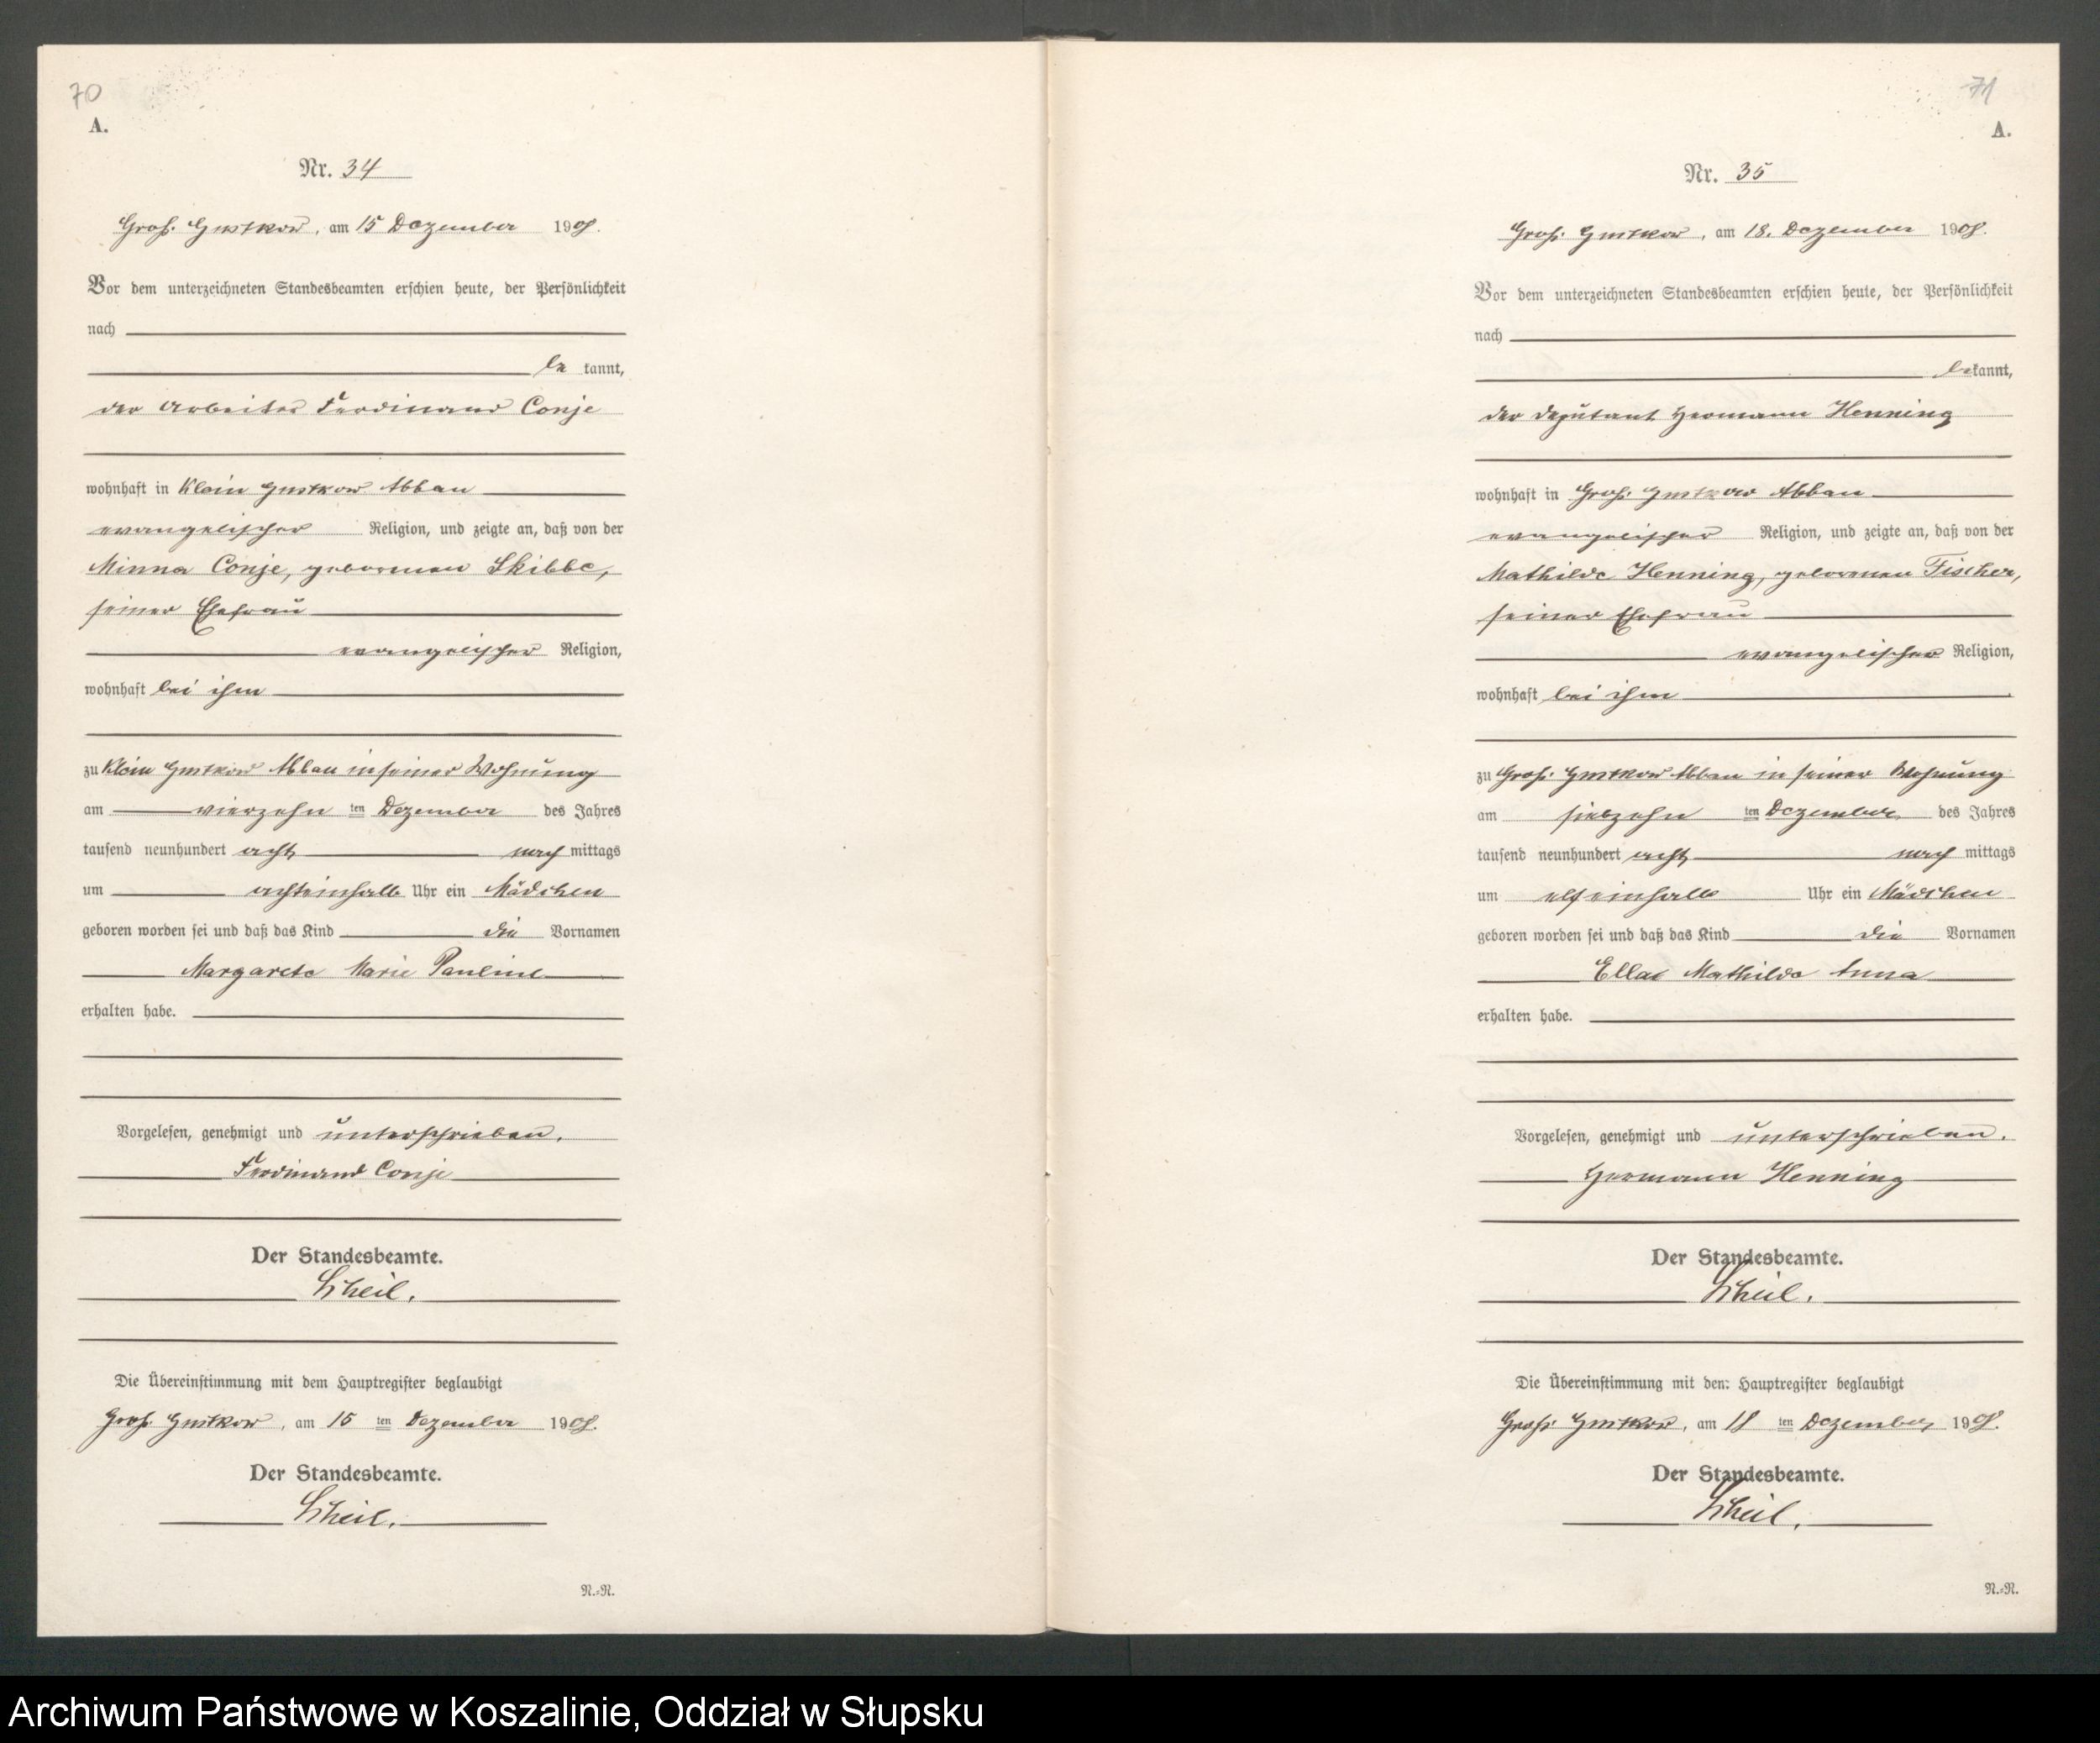 70
A.
Nr. 34
Groß Gustkow, am 15 Dezember 1908.
Vor dem unterzeichneten Standesbeamten erschien heute, der Persönlichkeit
nach
be kannt,
der Arbeiter Ferdinand Conje
wohnhaft in Klein Gustkow Abbau
evangelischer Religion, und zeigte an, daß von der
Minna Conje, geborenen Skibbe,
seiner Ehefrau
evangelischer Religion,
wohnhaft bei ihm
zu Klein Gustkow Abbau in seiner Wohnung
am vierzehn ten Dezember des Jahres
tausend neunhundert acht nach mittags
um achteinhalb Uhr ein Mädchen
geboren worden sei und daß das Kind die Vornamen
Margarete Marie Pauline
erhalten habe.
Vorgelesen, genehmigt und unterschrieben.
Ferdinand Conje
Der Standesbeamte.
Scheil.
Die Übereinstimmung mit dem Hauptregister beglaubigt
Groß Gustkow, am 15 ten Dezember 1908.
Der Standesbeamte.
Scheil.
N.=N.
71
A.
Nr. 35
Groß Gustkow, am 18. Dezember 1908.
Vor dem unterzeichneten Standesbeamten erschien heute, der Persönlichkeit
nach
bekannt,
der Deputant Hermann Henning
wohnhaft in Groß Gustkow Abbau
evangelischer Religion, und zeigte an, daß von der
Mathilde Henning, geborenen Fischer,
seiner Ehefrau
evangelischer Religion,
wohnhaft bei ihm
zu Groß Gustkow Abbau in seiner Wohnung
am siebzehn ten Dezember des Jahres
tausend neunhundert acht nach mittags
um elfeinhalb Uhr ein Mädchen
geboren worden sei und daß das Kind die Vornamen
Ella Mathilde Anna
erhalten habe.
Vorgelesen, genehmigt und unterschrieben.
Hermann Henning
Der Standesbeamte.
Scheil.
Die Übereinstimmung mit dem Hauptregister beglaubigt
Groß Gustkow, am 18 ten Dezember 1908.
Der Standesbeamte.
Scheil.
N.=N.
Archiwum Państwowe w Koszalinie, Oddział w Słupsku